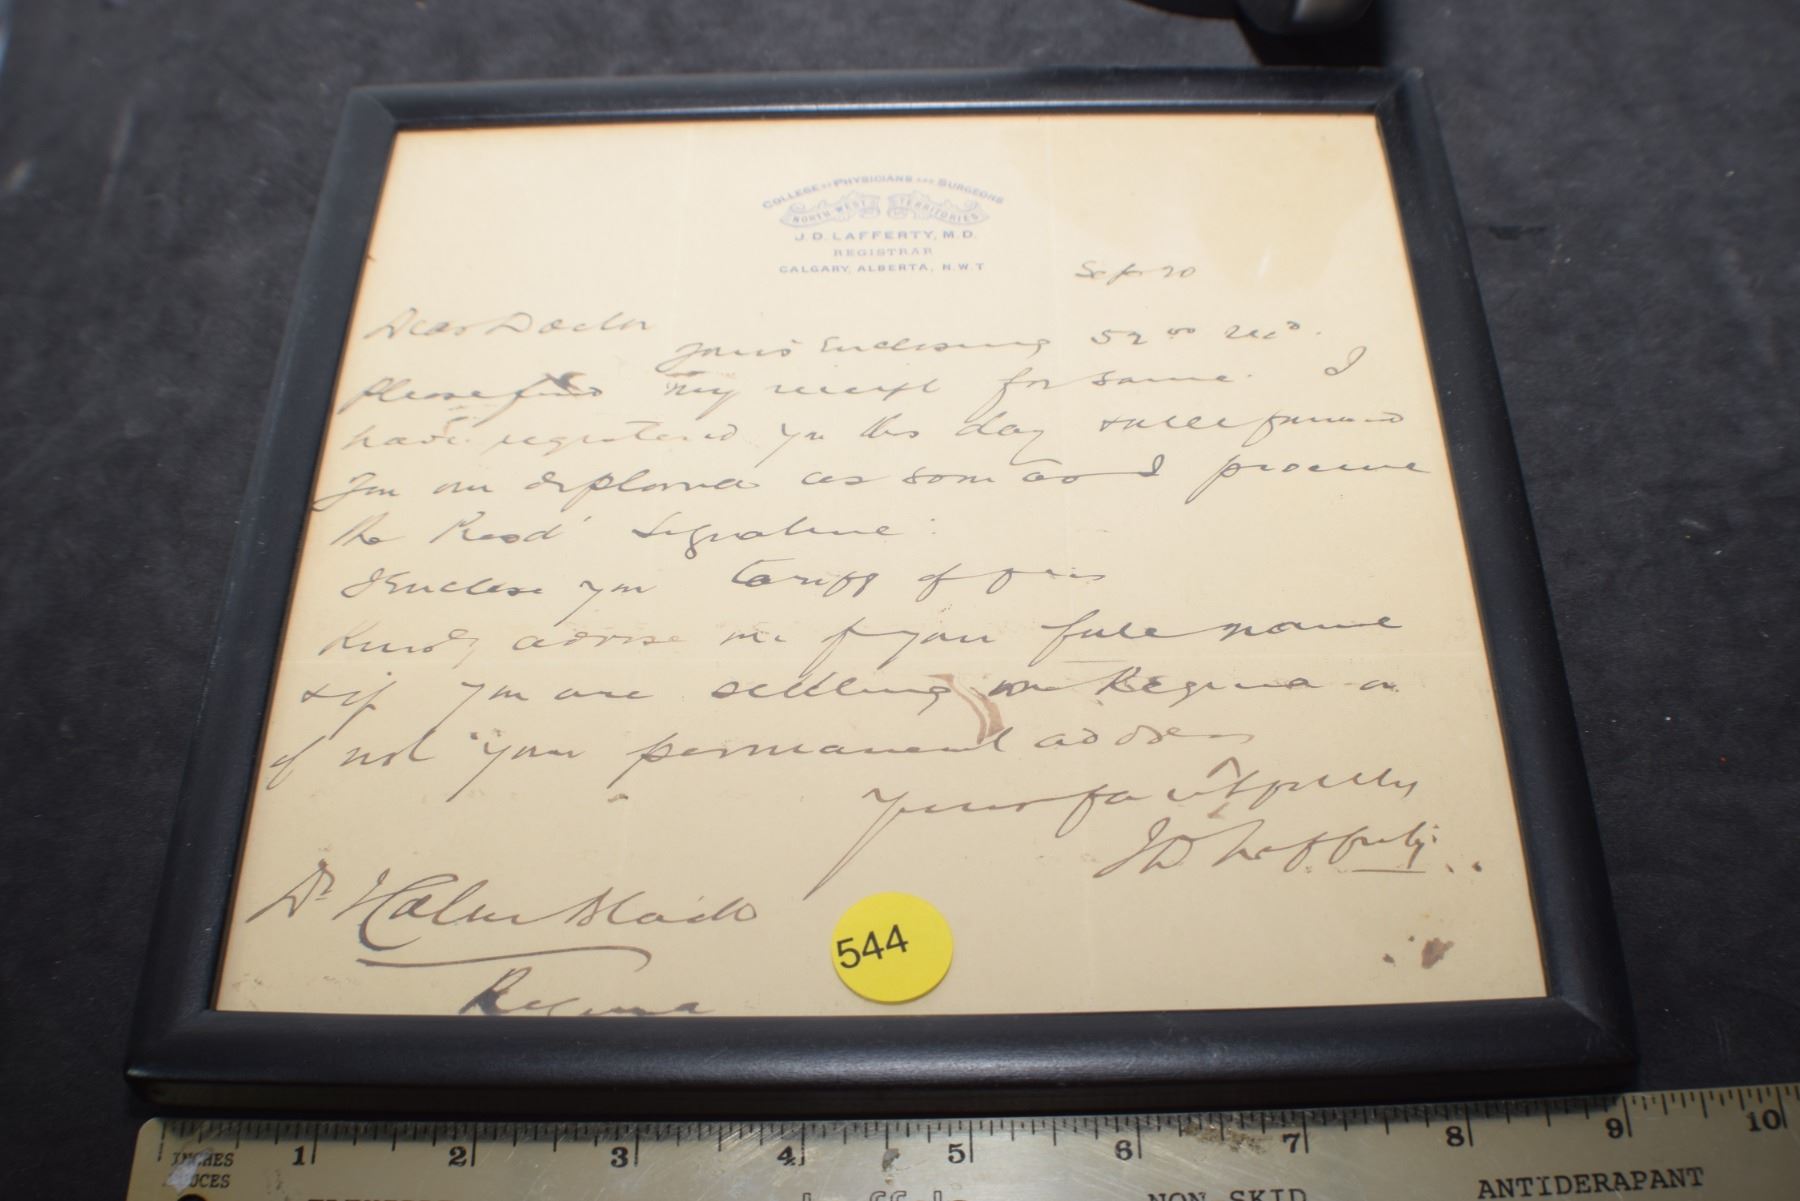 COLLEGE OF PHYSICIANS AND SURGEONS
NORTH WEST TERRITORIES
J. D. LAFFERTY, M. D.
REGISTRAR
CALGARY, ALBERTA, N. W. T
Sept 20
Dear Doctor
Yours Enclosing 52 00 recd.
Please find my receipt for same. I
have registered you this day & will forward
you our diploma as soon as I procure
the Presd' Signature.
I Enclose you tariff of fees
Kindly advise me of your full name
& if you are settling in Regina or
if not your permanent address
Yours faithfully
JD Lafferty
Dr
Regina
544
INCHES
POUCES
1 2 3 4 5 6 7 8 9 10
NON SKID
ANTIDERAPANT